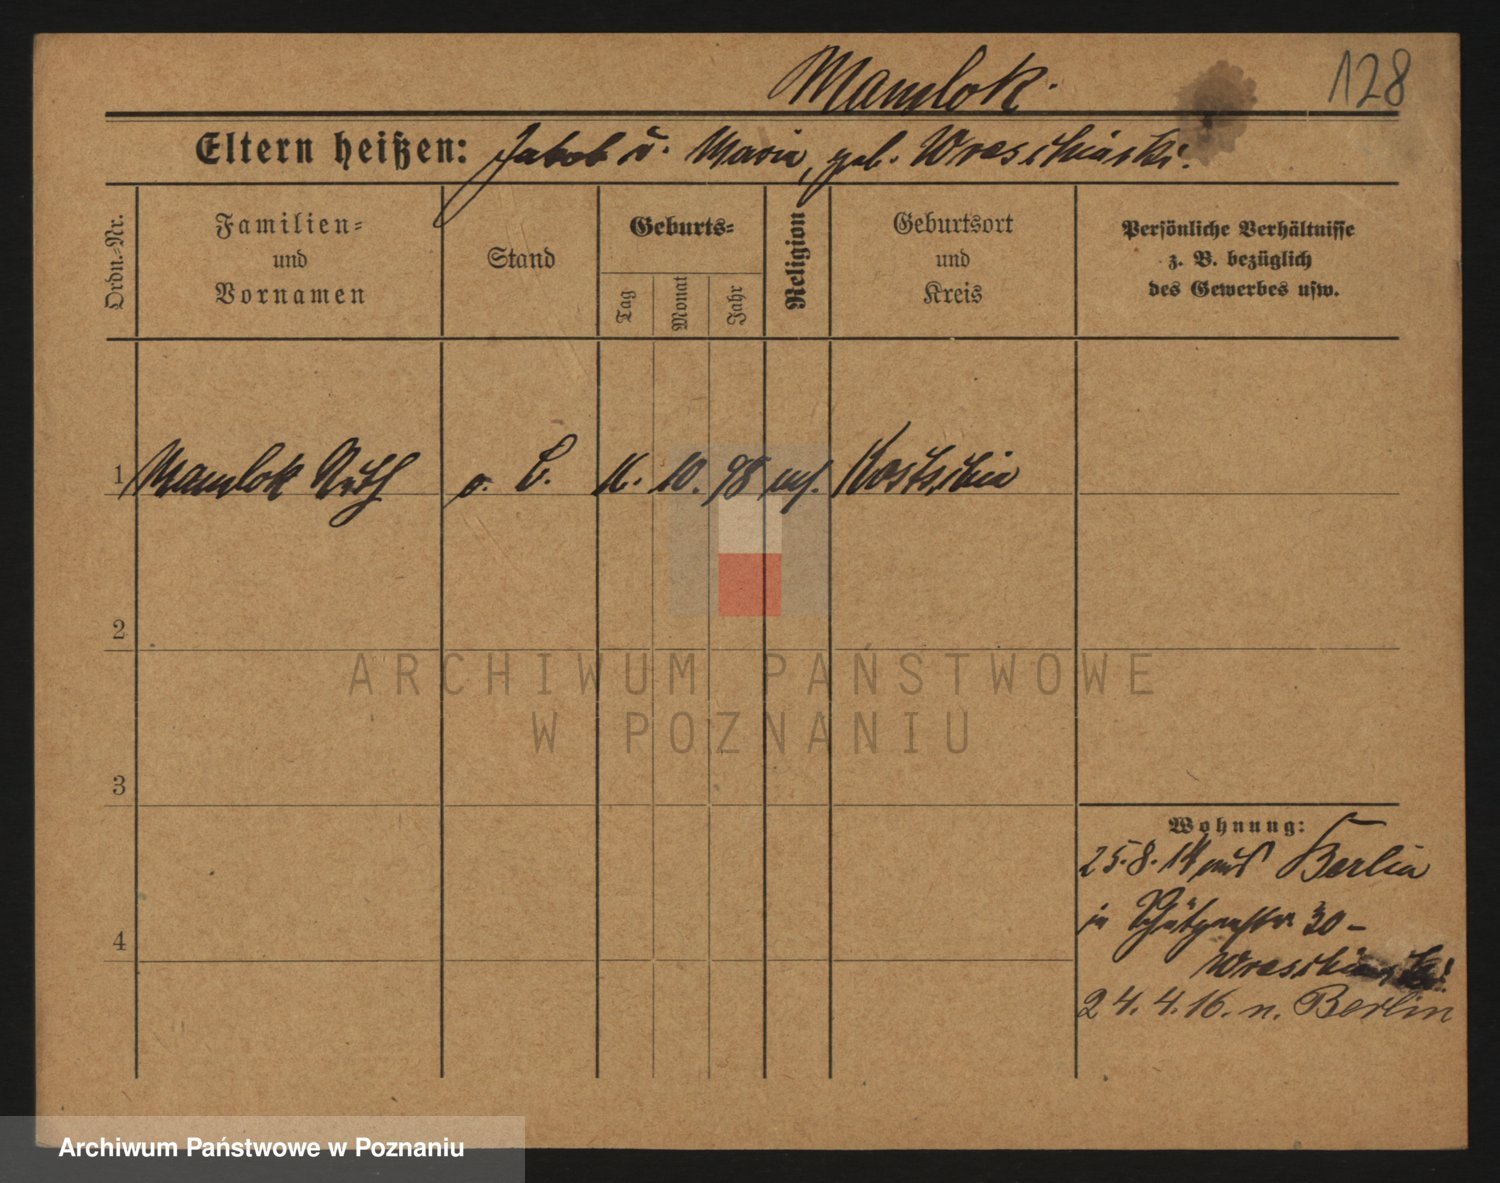 Mamlok.
128
Eltern heißen: Jakob u. Maria, geb. Wreschinski.
Ordn.-Nr.
Familien-
und
Vornamen
Stand
Geburts-
Tag
Monat
Jahr
Religion
Geburtsort
und
Kreis
Persönliche Verhältnisse
z. B. bezüglich
des Gewerbes usw.
1 Mamlok Ruth o. B. 11. 10. 98 Kostschin
2
3
4
Wohnung:
25.8.14 aus Berlin
in Schützenstr. 30 -
Wreschinski
24.4.16. n. Berlin
ARCHIWUM PAŃSTWOWE
W POZNANIU
Archiwum Państwowe w Poznaniu